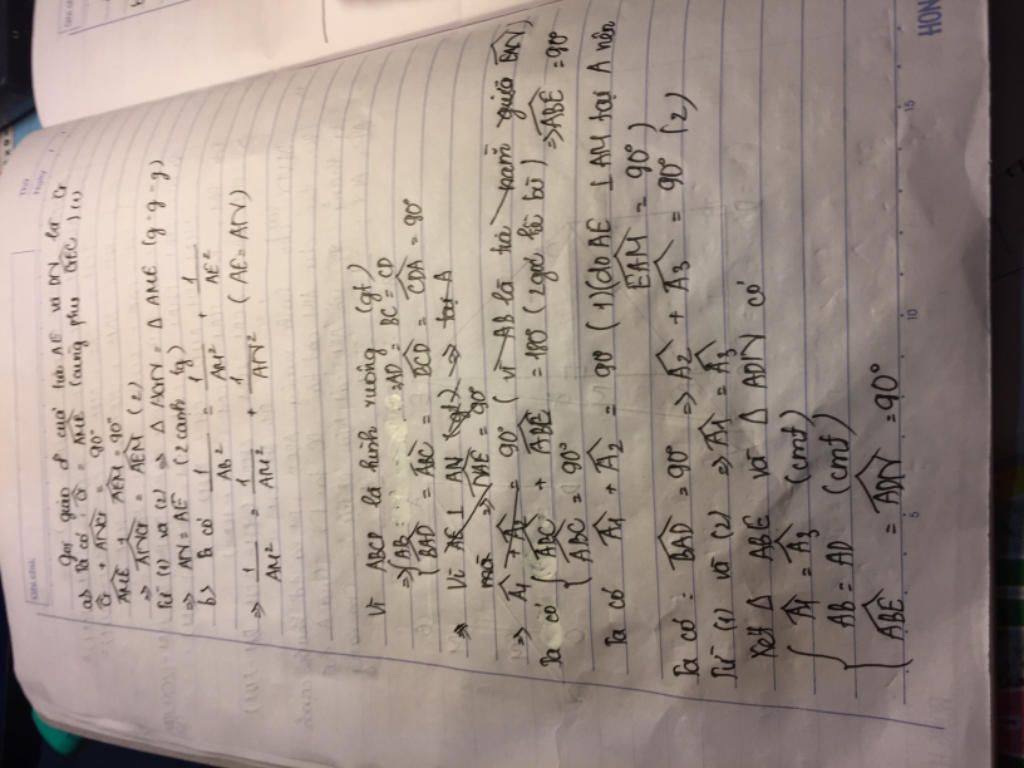 gọi giao of của tia AE và DN là G
a) Ta có Ĝ = AME (cùng phụ GEC) (1)
Ĝ + ANG = 90°
AME + AEM = 90°
⇒ ANG = AEM (2)
Từ (1) và (2) ⇒ Δ ADN = Δ AME (g-g-g)
⇒ AN = AE (2 cạnh tg)
b) Ta có 1/Ab² = 1/AM² + 1/AE²
⇒ 1/AM² = 1/AM² + 1/AN² (AE = AN)
Vì ABCD là hình vuông (gt)
⇒ { AB = AD = BC = CD
{ BAD = ABC = BCD = CDA = 90°
⇒ Vì AE ⊥ AN (gt) ⇒ tại A
mà ⇒ NAE = 90°
⇒ A1 + A2 = 90° (vì AB là tia nằm giữa EAN)
Ta có { ABC + ABE = 180° (2 góc kề bù) ⇒ ABE = 90°
{ ABC = 90°
Ta có A1 + A2 = 90 (1) (do AE ⊥ AM tại A nên
EAM = 90°)
Ta có: BAD = 90° ⇒ A2 + A3 = 90° (2)
Từ (1) và (2) ⇒ A1 = A3
Xét Δ ABE và Δ ADN có
{ A1 = A3 (cmt)
AB = AD (cmt)
{ ABE = ADN = 90°
5 10 15
HON